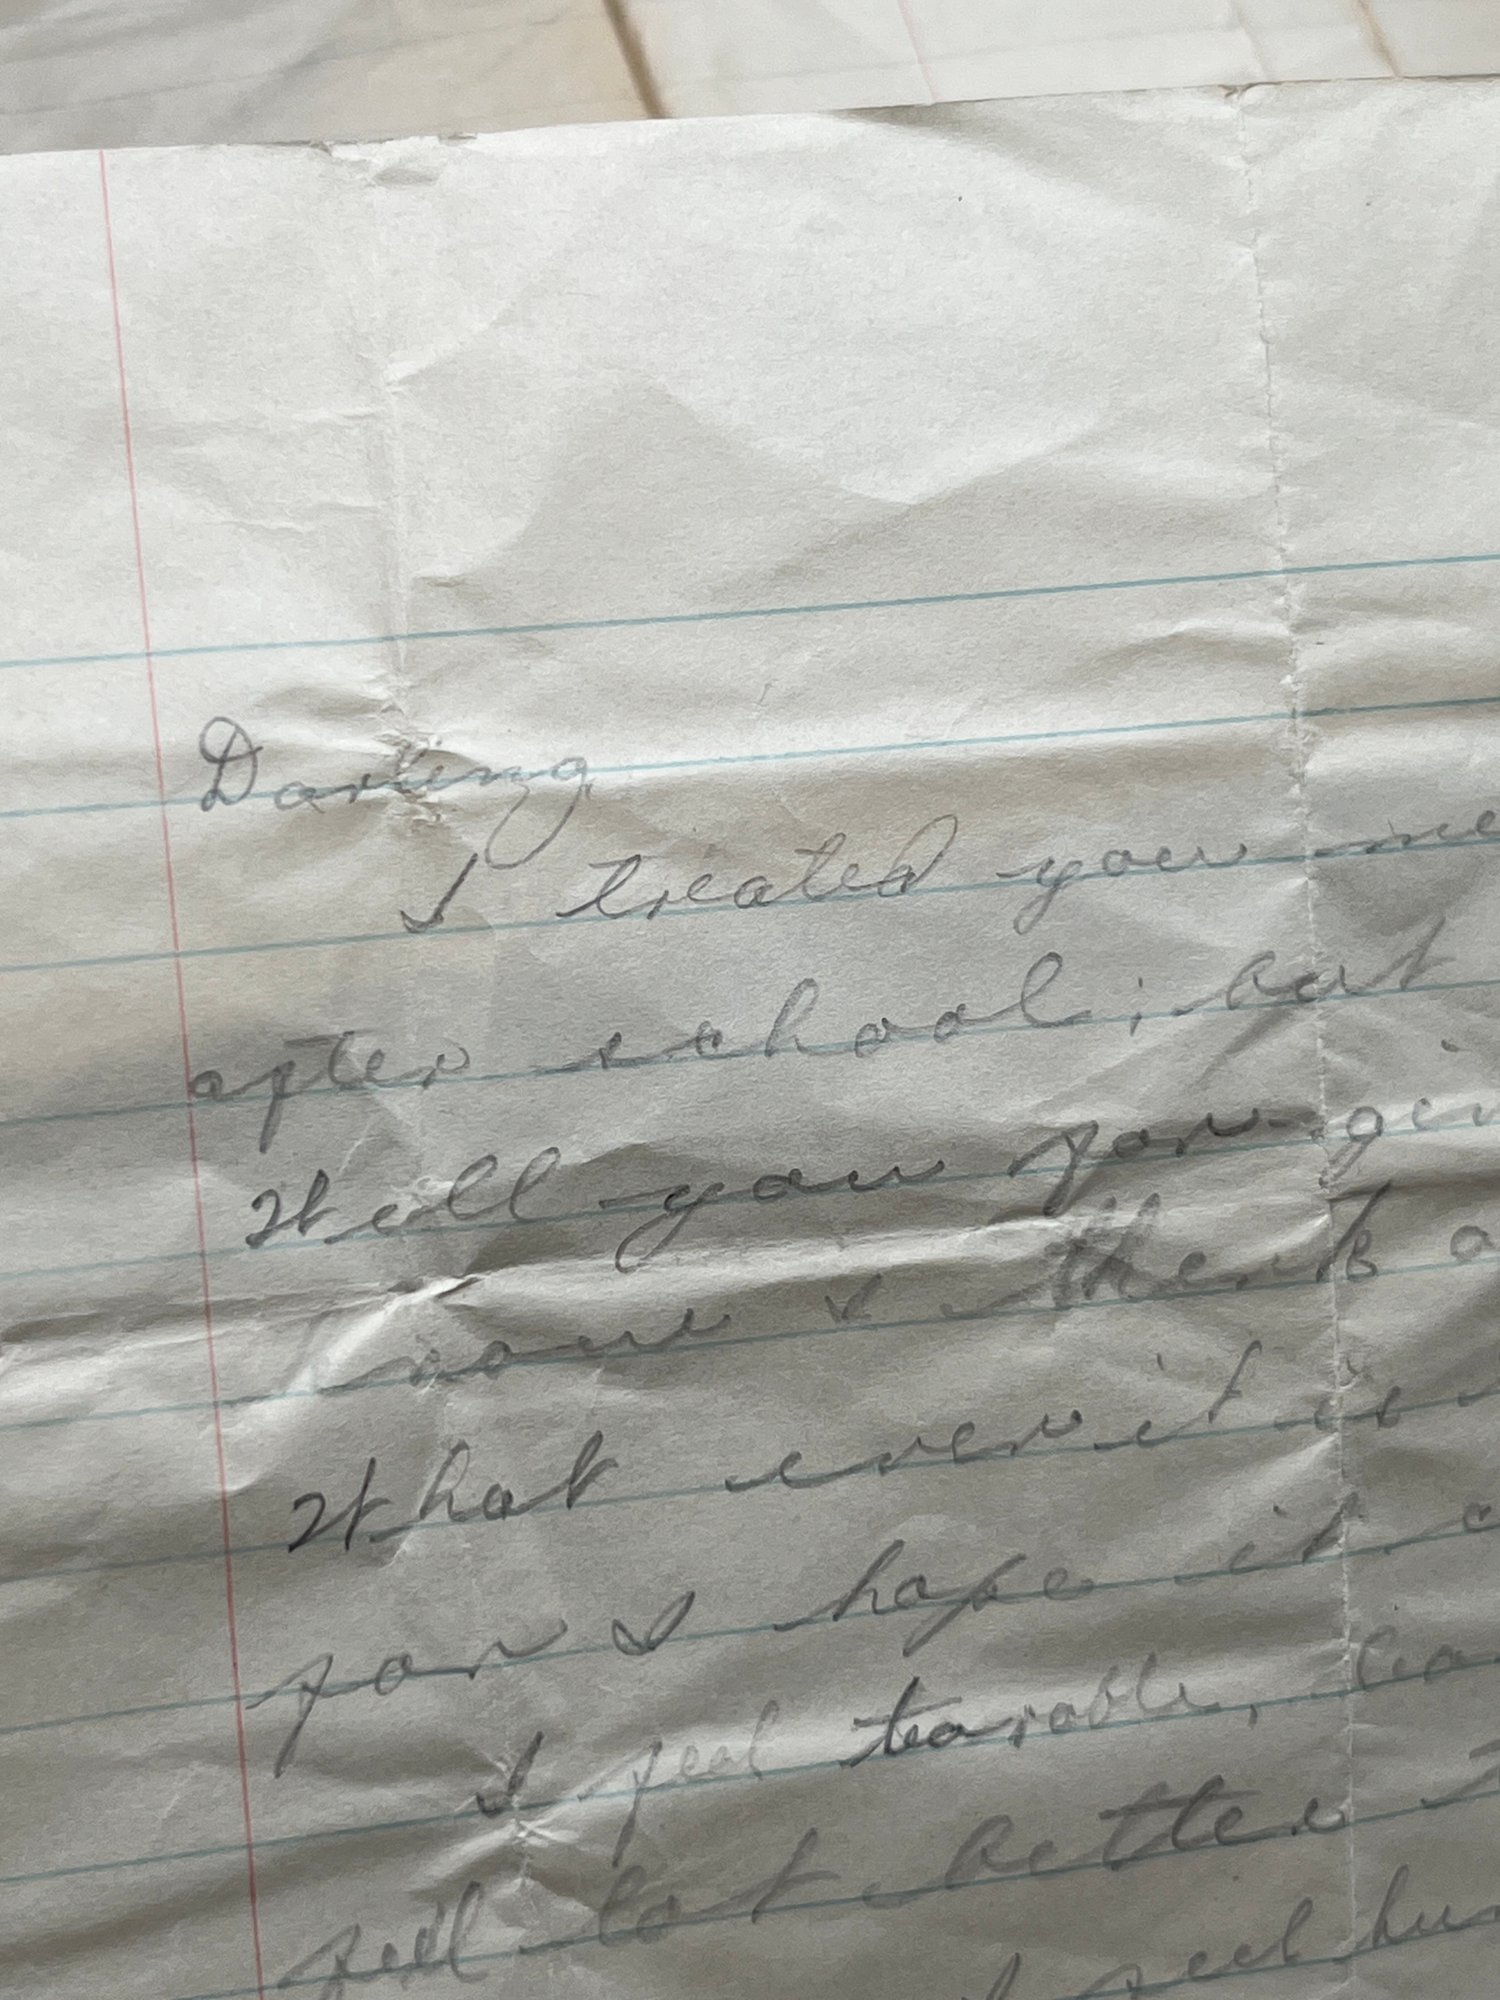 Darling
I treated you me
after school; but
tell you for give
now & then
What ever it is
for I hope it
I feel tearable,
feel lot better I
I feel hu